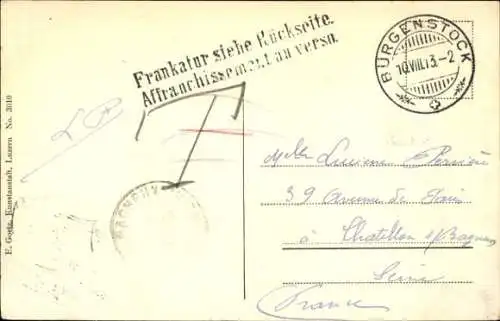 Frankatur siehe Rückseite.
Affranchissement au verso.
BÜRGENSTOCK
10.VIII.13.-2
T
E. Goetz, Kunstanstalt, Luzern No. 3010
Melle Lucienne
39 Avenue de Paris
à Chatillon s/Bagneux
Seine
France
BAGNEUX